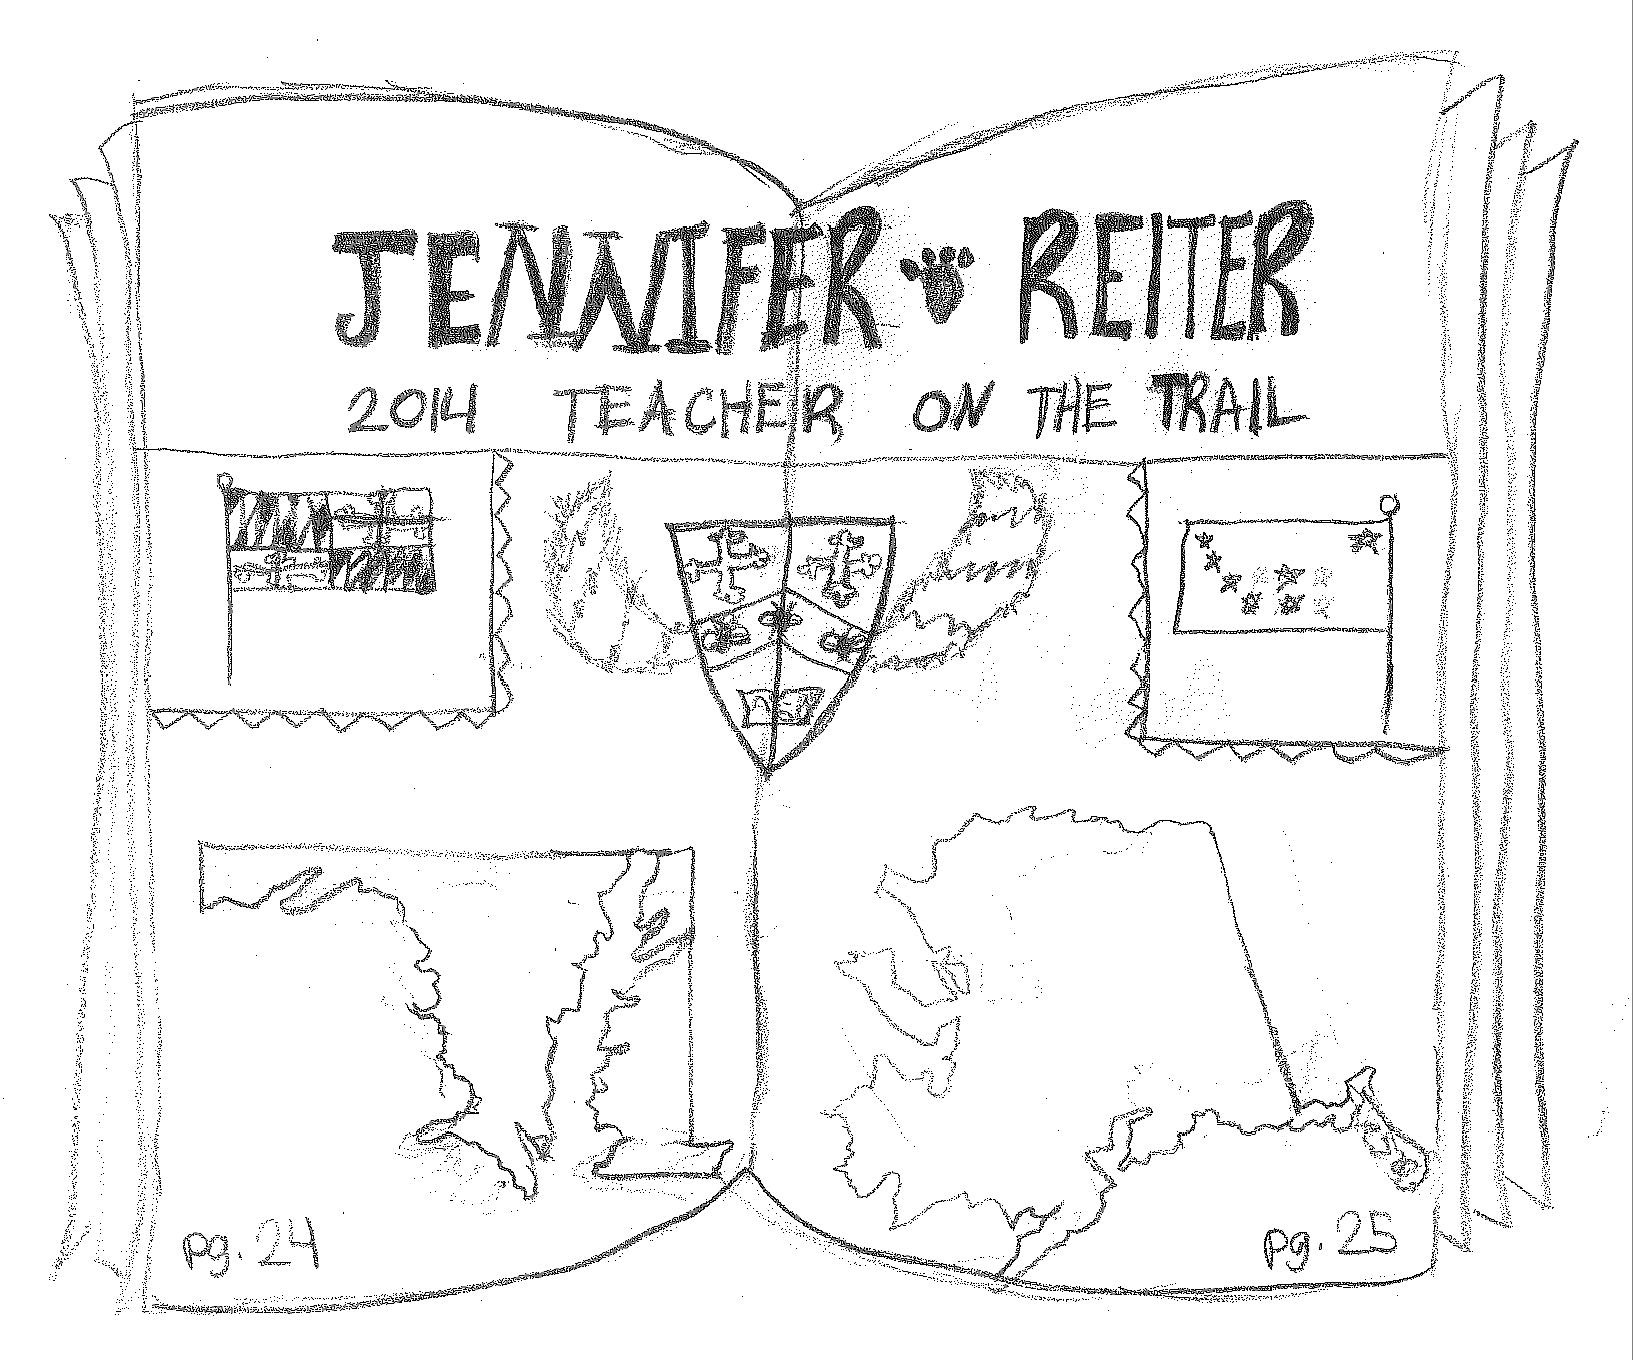 JENNIFER REITER
2014 TEACHER ON THE TRAIL
pg. 24
pg. 25